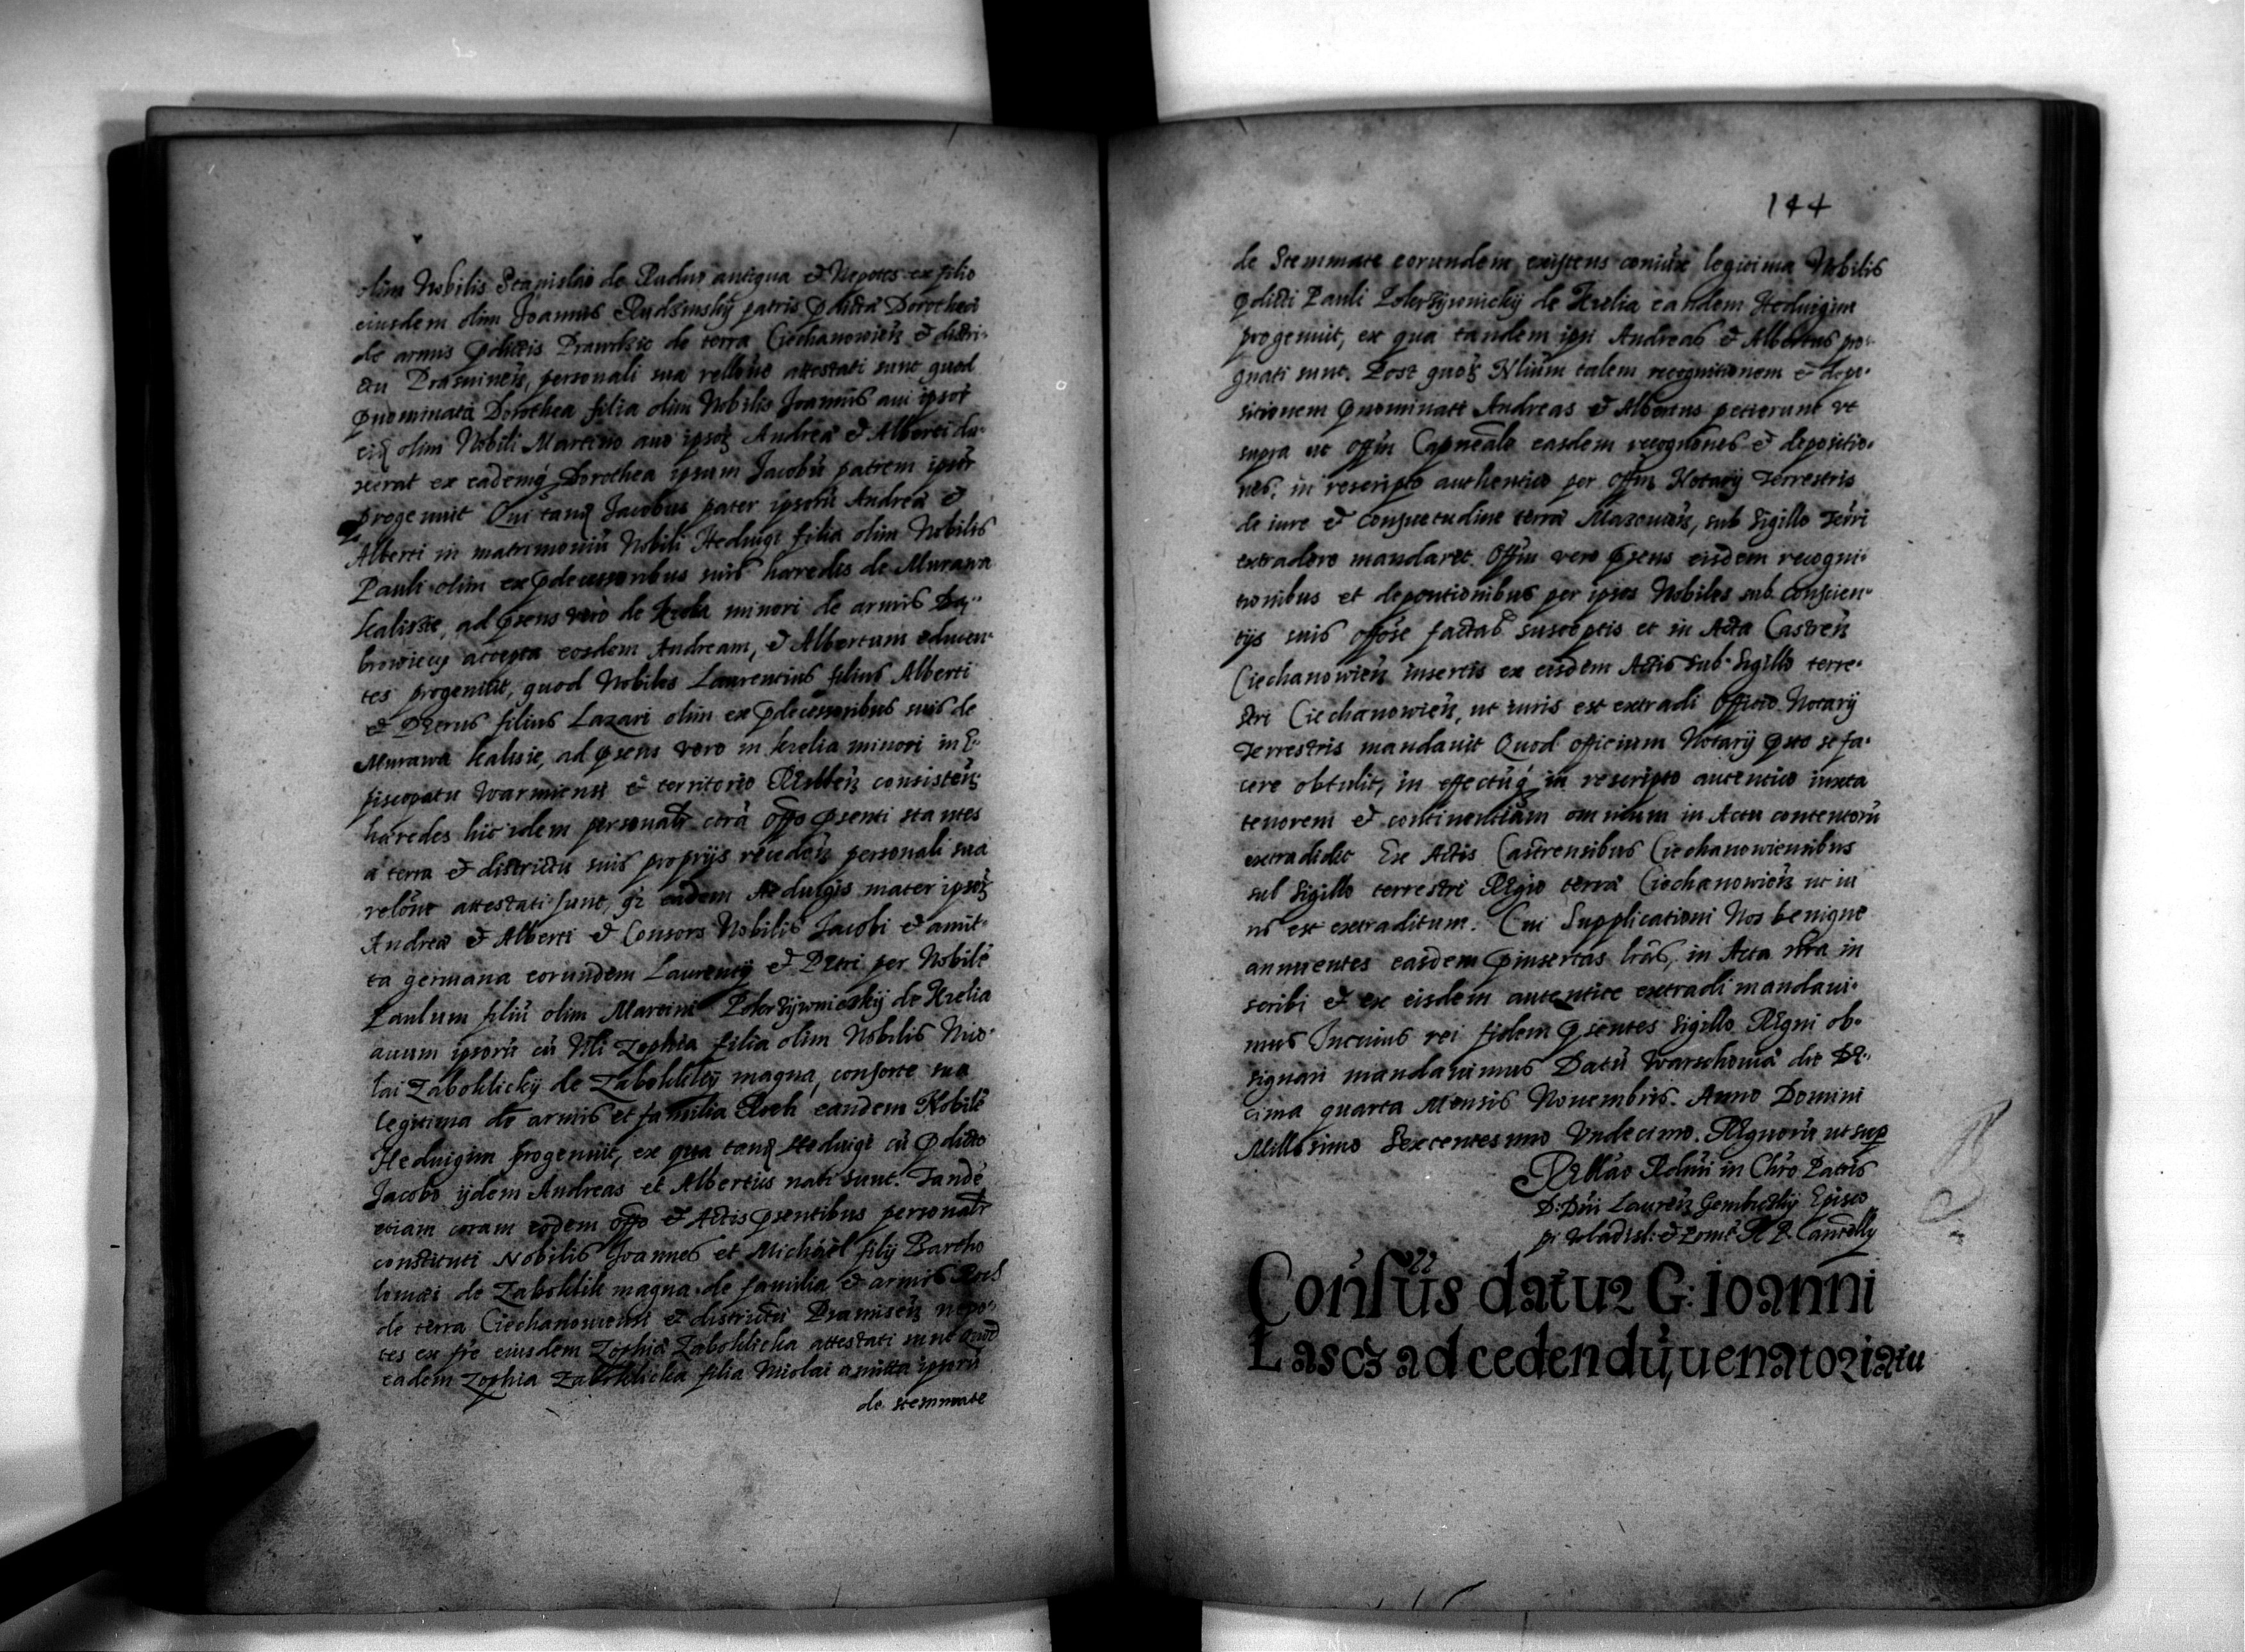 olim Nobilis Stanislai de Rudno antiqua et Nepotes ex filio
eiusdem olim Joannis Rudzinskij patris pdictae Dorotheae
de armis pdictis Prawdzic de terra Ciechanowien et distri-
ctu Prasninen, personali sua rellone attestati sunt quod
pnominata Dorothea filia olim Nobilis Joannis aui ipsor
olim Nobili Martino auo ipsoz Andreae et Alberti du-
xerat ex eademq Dorothea ipsum Jacobu patrem ipsor
progenuit Qui tand Jacobus pater ipsoru Andreae et
Alberti in matrimoniu Nobili Heduigi filia olim Nobilis
Pauli olim ex pdecessoribus suis haeredis de Murawa
Kalisze, ad psens vero de Krelia minori de armis Da-
browiccy accepta eosdem Andream, et Albertum educen-
tes progenuit, quod Nobiles Laurentius filius Alberti
et Petrus filius Lazari olim ex pdecessoribus suis de
Murawa Kalisie, ad psens vero in Krelia minori in E-
piscopatu Warmiensi et territorio Resslen consisten
haeredes hic idem personalr cora offo psenti stantes
a terra et districtu suis proprijs receden personali sua
relone attestati sunt, qz eadem Heduigis mater ipsoz
Andreae et Alberti et Consors Nobilis Jacobi et amit-
ta germana eorundem Laurentij et Petri per Nobile
Paulum filiu olim Martini Pokrzijwnickij de Krelia
auum ipsoru cu Nli Zophia filia olim Nobilis Nico-
lai Zaboklicky de Zaboklik magna, consorte sua
legitima de armis et familia Roch eandem Nobile
Heduigim progenuit, ex qua tand Heduigi cu pdicto
Jacobo ijdem Andreas et Albertus nati sunt. Tande
etiam coram eodem offo et Actis psentibus personalr
constituti Nobilis Joannes et Michael filij Bartho
lomaei de Zaboklik magna de familia et armis Roch
de terra Ciechanowiensi et districtu Prasnisen nepo-
tes ex fre eiusdem Zophiae Zaboklicka attestati sunt quod
eadem Zophia Zaboklicka filia Nicolai amitta ipsoru
de stemmate
144
de Stemmate eorundem existens coniux legitima Nobilis
pdicti Pauli Pokrzijwnickij de Krelia eandem Heduigim
progenuit, ex qua tandem ipsi Andreas et Albertus pro-
gnati sunt. Post quaz Nlium talem recognitionem et depo-
sitionem pnominati Andreas et Albertus petierunt vt
supra ut offm Capneale easdem recognones et depositio-
nes, in rescripto authentico per offm Notarij Terrestris
de iure et consuetudine terrae Mazouien, sub Sigillo Terri
extradere mandaret. Offm vero psens eisdem recogni-
tionibus et depositionibus per ipsos Nobiles sub conscien-
tijs suis offose factas susceptis et in Acta Castren
Ciechanowien insertis ex eisdem Actis sub Sigillo terre-
stri Ciechanowien, ut iuris est extradi Officio Notarij
Terrestris mandauit Quod officium Notarij psto se fa-
cere obtulit, in effectuq in rescripto autentico iuxta
tenorem et continentiam omnium in Actu contentoru
extradidit Ex Actis Castrensibus Ciechanowiensibus
sub Sigillo terrestri Regio terrae Ciechanowien ut iu
ris est extraditum. Cui Supplicationi Nos benigne
annuentes easdem pinsertas lras, in Acta nra in
scribi et ex eisdem autentice extradi mandaui-
mus Incuius rei fidem psentes Sigillo Regni ob-
signari mandauimus Datu Warschouiae die De-
cima quarta Mensis Nouembris. Anno Domini
Millesimo Sexcentesimo Vndecimo. Regnoru ut sup
Rellao Rdmi in Chro Patris
D: Dni Lauren Gembickij Episco
pi Wladisl: et Pome: R P. Cancelly
Consus datur G: Ioanni
Lascz ad cedendu, uenatoriatu